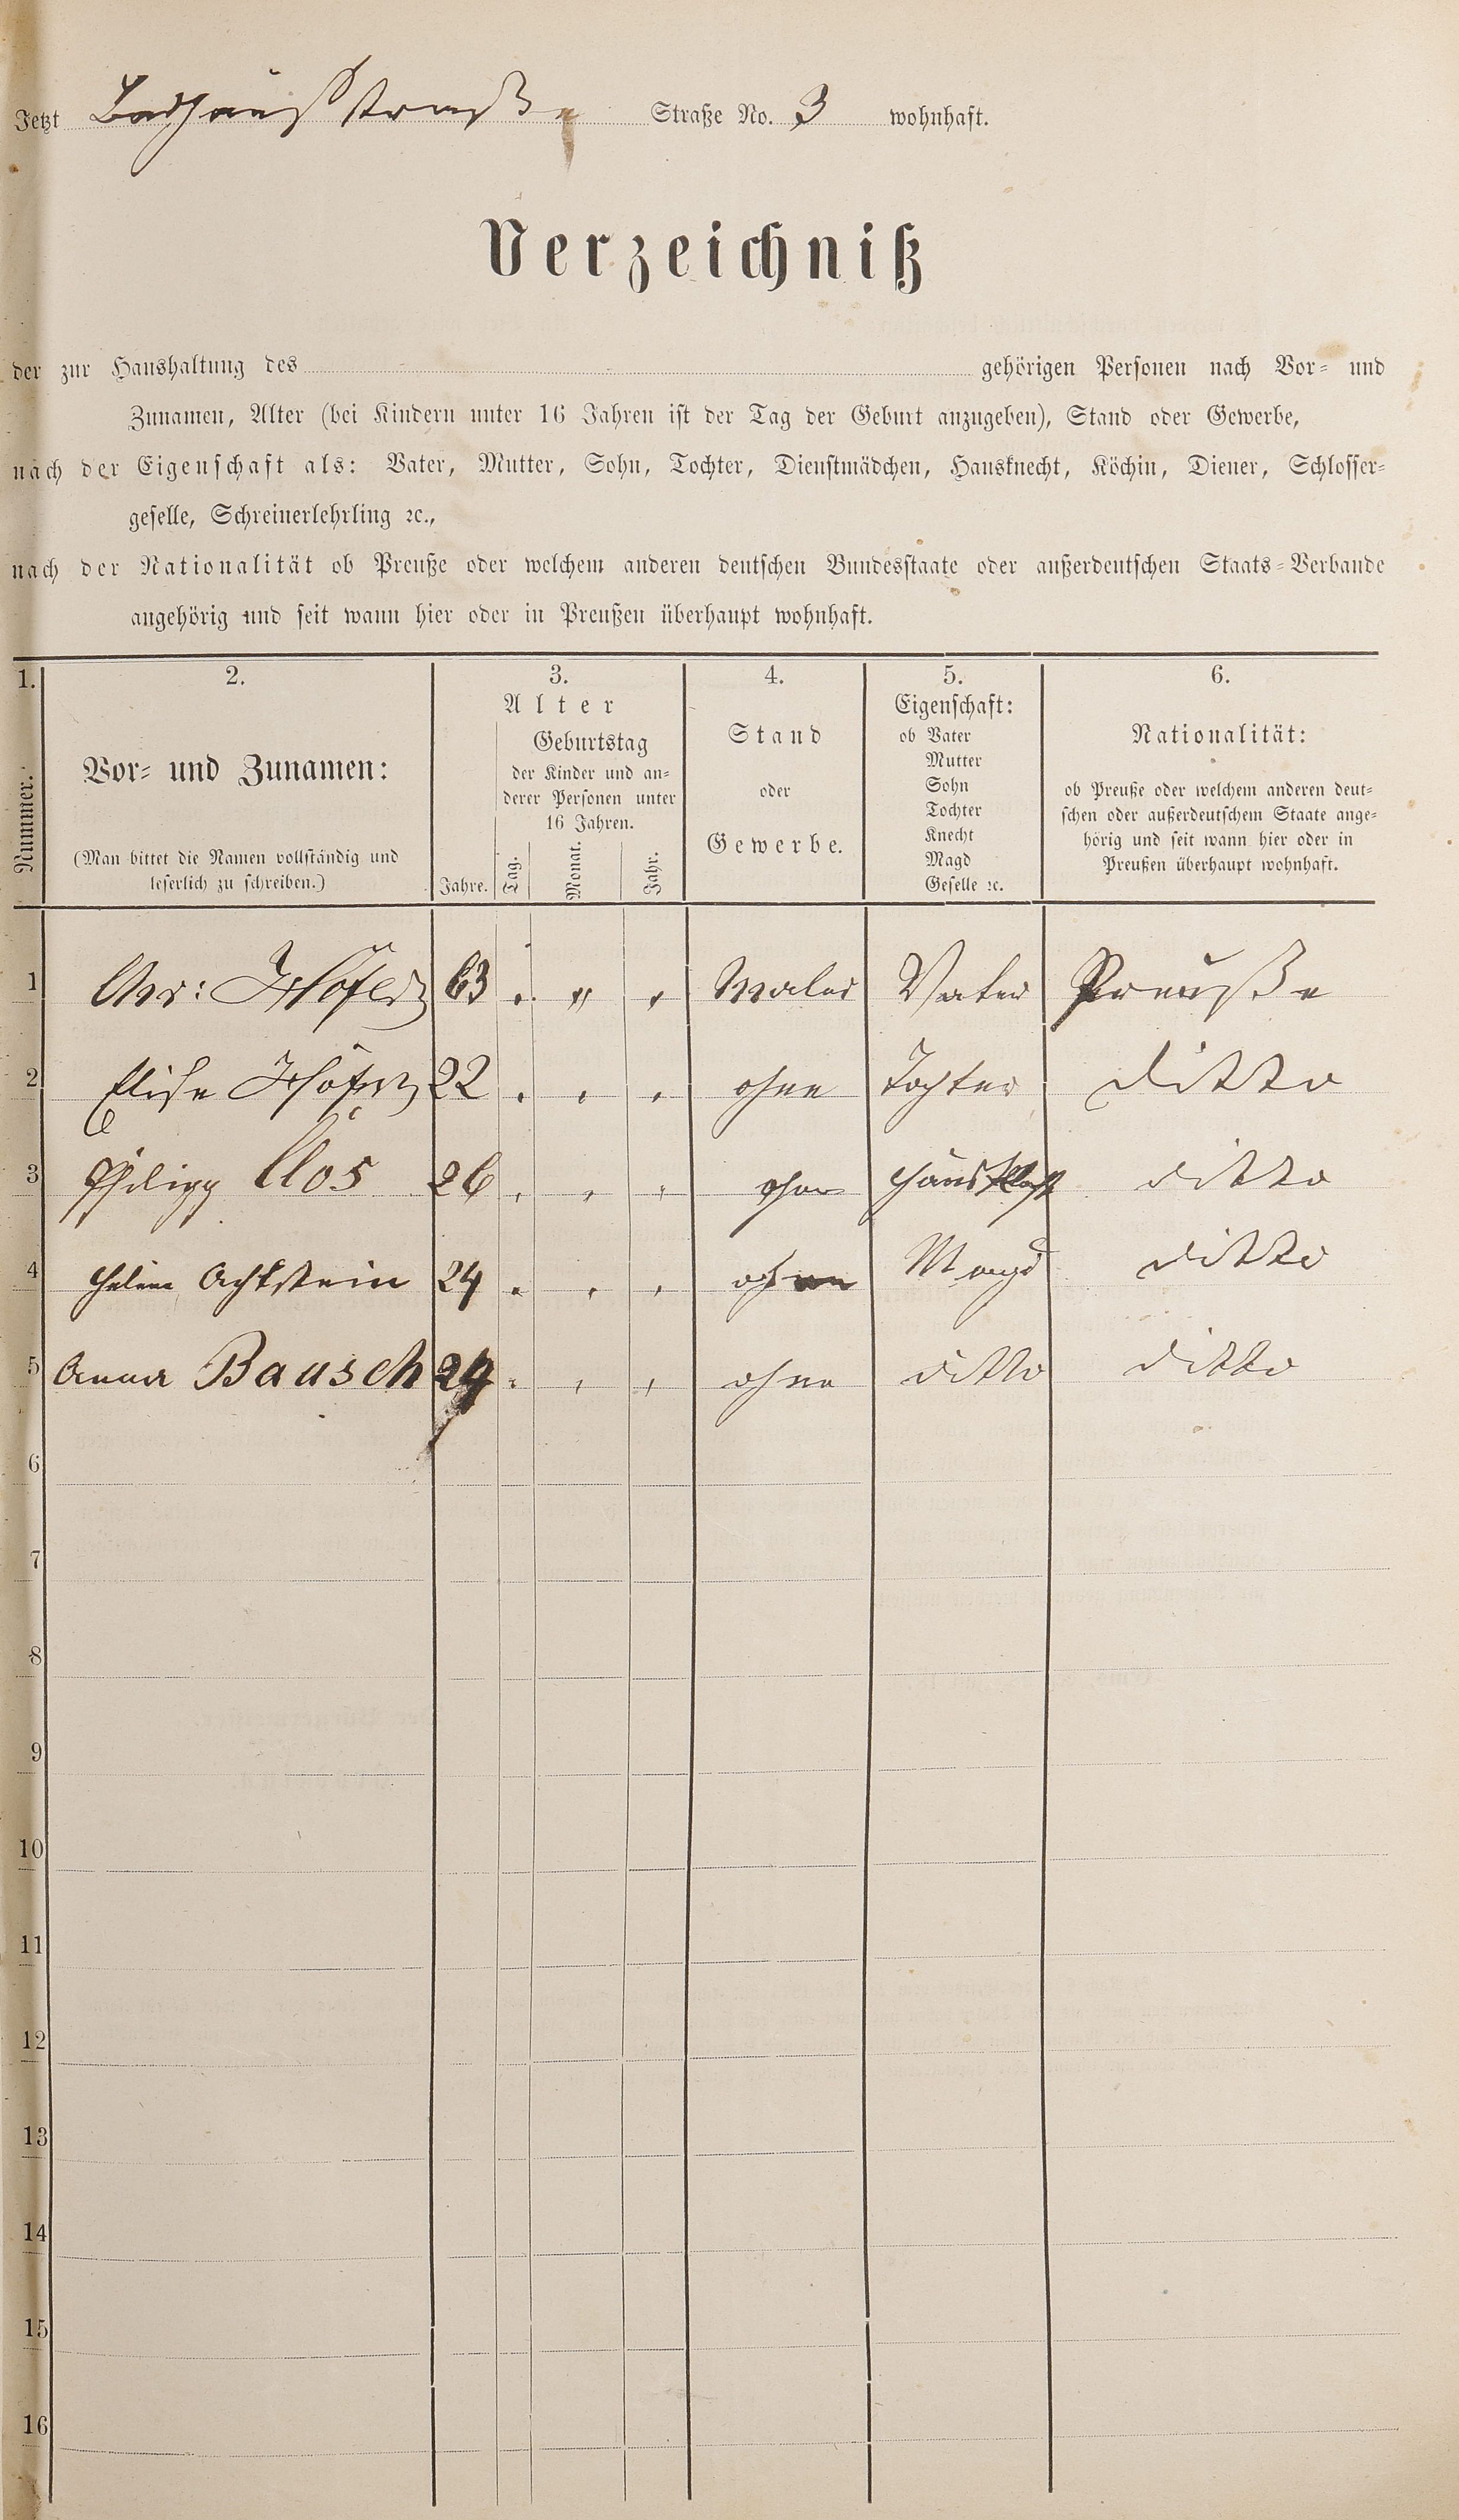 Jetzt Badhausstraße Straße No. 3 wohnhaft.
Verzeichniß
der zur Haushaltung des gehörigen Personen nach Vor- und
Zunamen, Alter (bei Kindern unter 16 Jahren ist der Tag der Geburt anzugeben), Stand oder Gewerbe,
nach der Eigenschaft als: Vater, Mutter, Sohn, Tochter, Dienstmädchen, Hausknecht, Köchin, Diener, Schlosser-
geselle, Schreinerlehrling ꝛc.,
nach der Nationalität ob Preuße oder welchem anderen deutschen Bundesstaate oder außerdeutschen Staats-Verbande
angehörig und seit wann hier oder in Preußen überhaupt wohnhaft.
1. 2. 3. 4. 5. 6.
Nummer.
Vor- und Zunamen:
(Man bittet die Namen vollständig und
leserlich zu schreiben.)
Alter
Jahre.
Geburtstag
der Kinder und an-
derer Personen unter
16 Jahren.
Tag. Monat. Jahr.
Stand
oder
Gewerbe.
Eigenschaft:
ob Vater
Mutter
Sohn
Tochter
Knecht
Magd
Geselle ꝛc.
Nationalität:
ob Preuße oder welchem anderen deut-
schen oder außerdeutschem Staate ange-
hörig und seit wann hier oder in
Preußen überhaupt wohnhaft.
1 Chr: 63 . " " Maler Vater Preuße
2 Elise 22 " " " ohne Tochter ditto
3 Philipp Clos 26 " " " ohne ditto
4 Achtstein 24 " " " ohne Magd ditto
5 Anna Bausch 24 " " " ohne ditto ditto
6
7
8
9
10
11
12
13
14
15
16